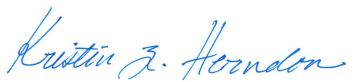 Kristin Z. Herndon